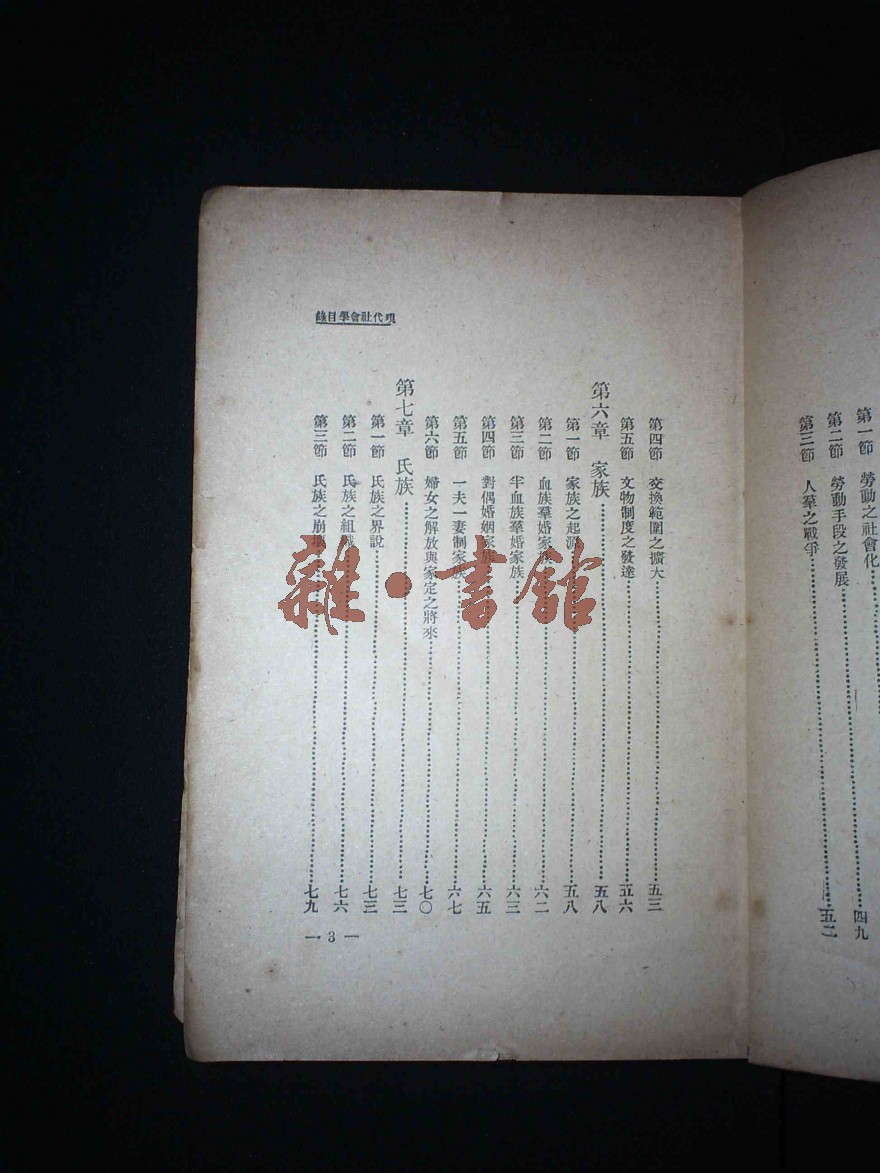 第一節 勞動之社會化
第二節 勞動手段之發展……四九
第三節 人羣之戰爭……五二
現代社會學目錄
第四節 交換範圍之擴大……五三
第五節 文物制度之發達……五六
第六章 家族……五八
第一節 家族之起源……五八
第二節 血族羣婚家族……六二
第三節 半血族羣婚家族……六三
第四節 對偶婚姻家族……六五
第五節 一夫一妻制家族……六七
第六節 婦女之解放與家定之將來……七〇
第七章 氏族……七三
第一節 氏族之界說……七三
第二節 氏族之組織……七六
第三節 氏族之崩壞……七九
— 3 —
雜·書館